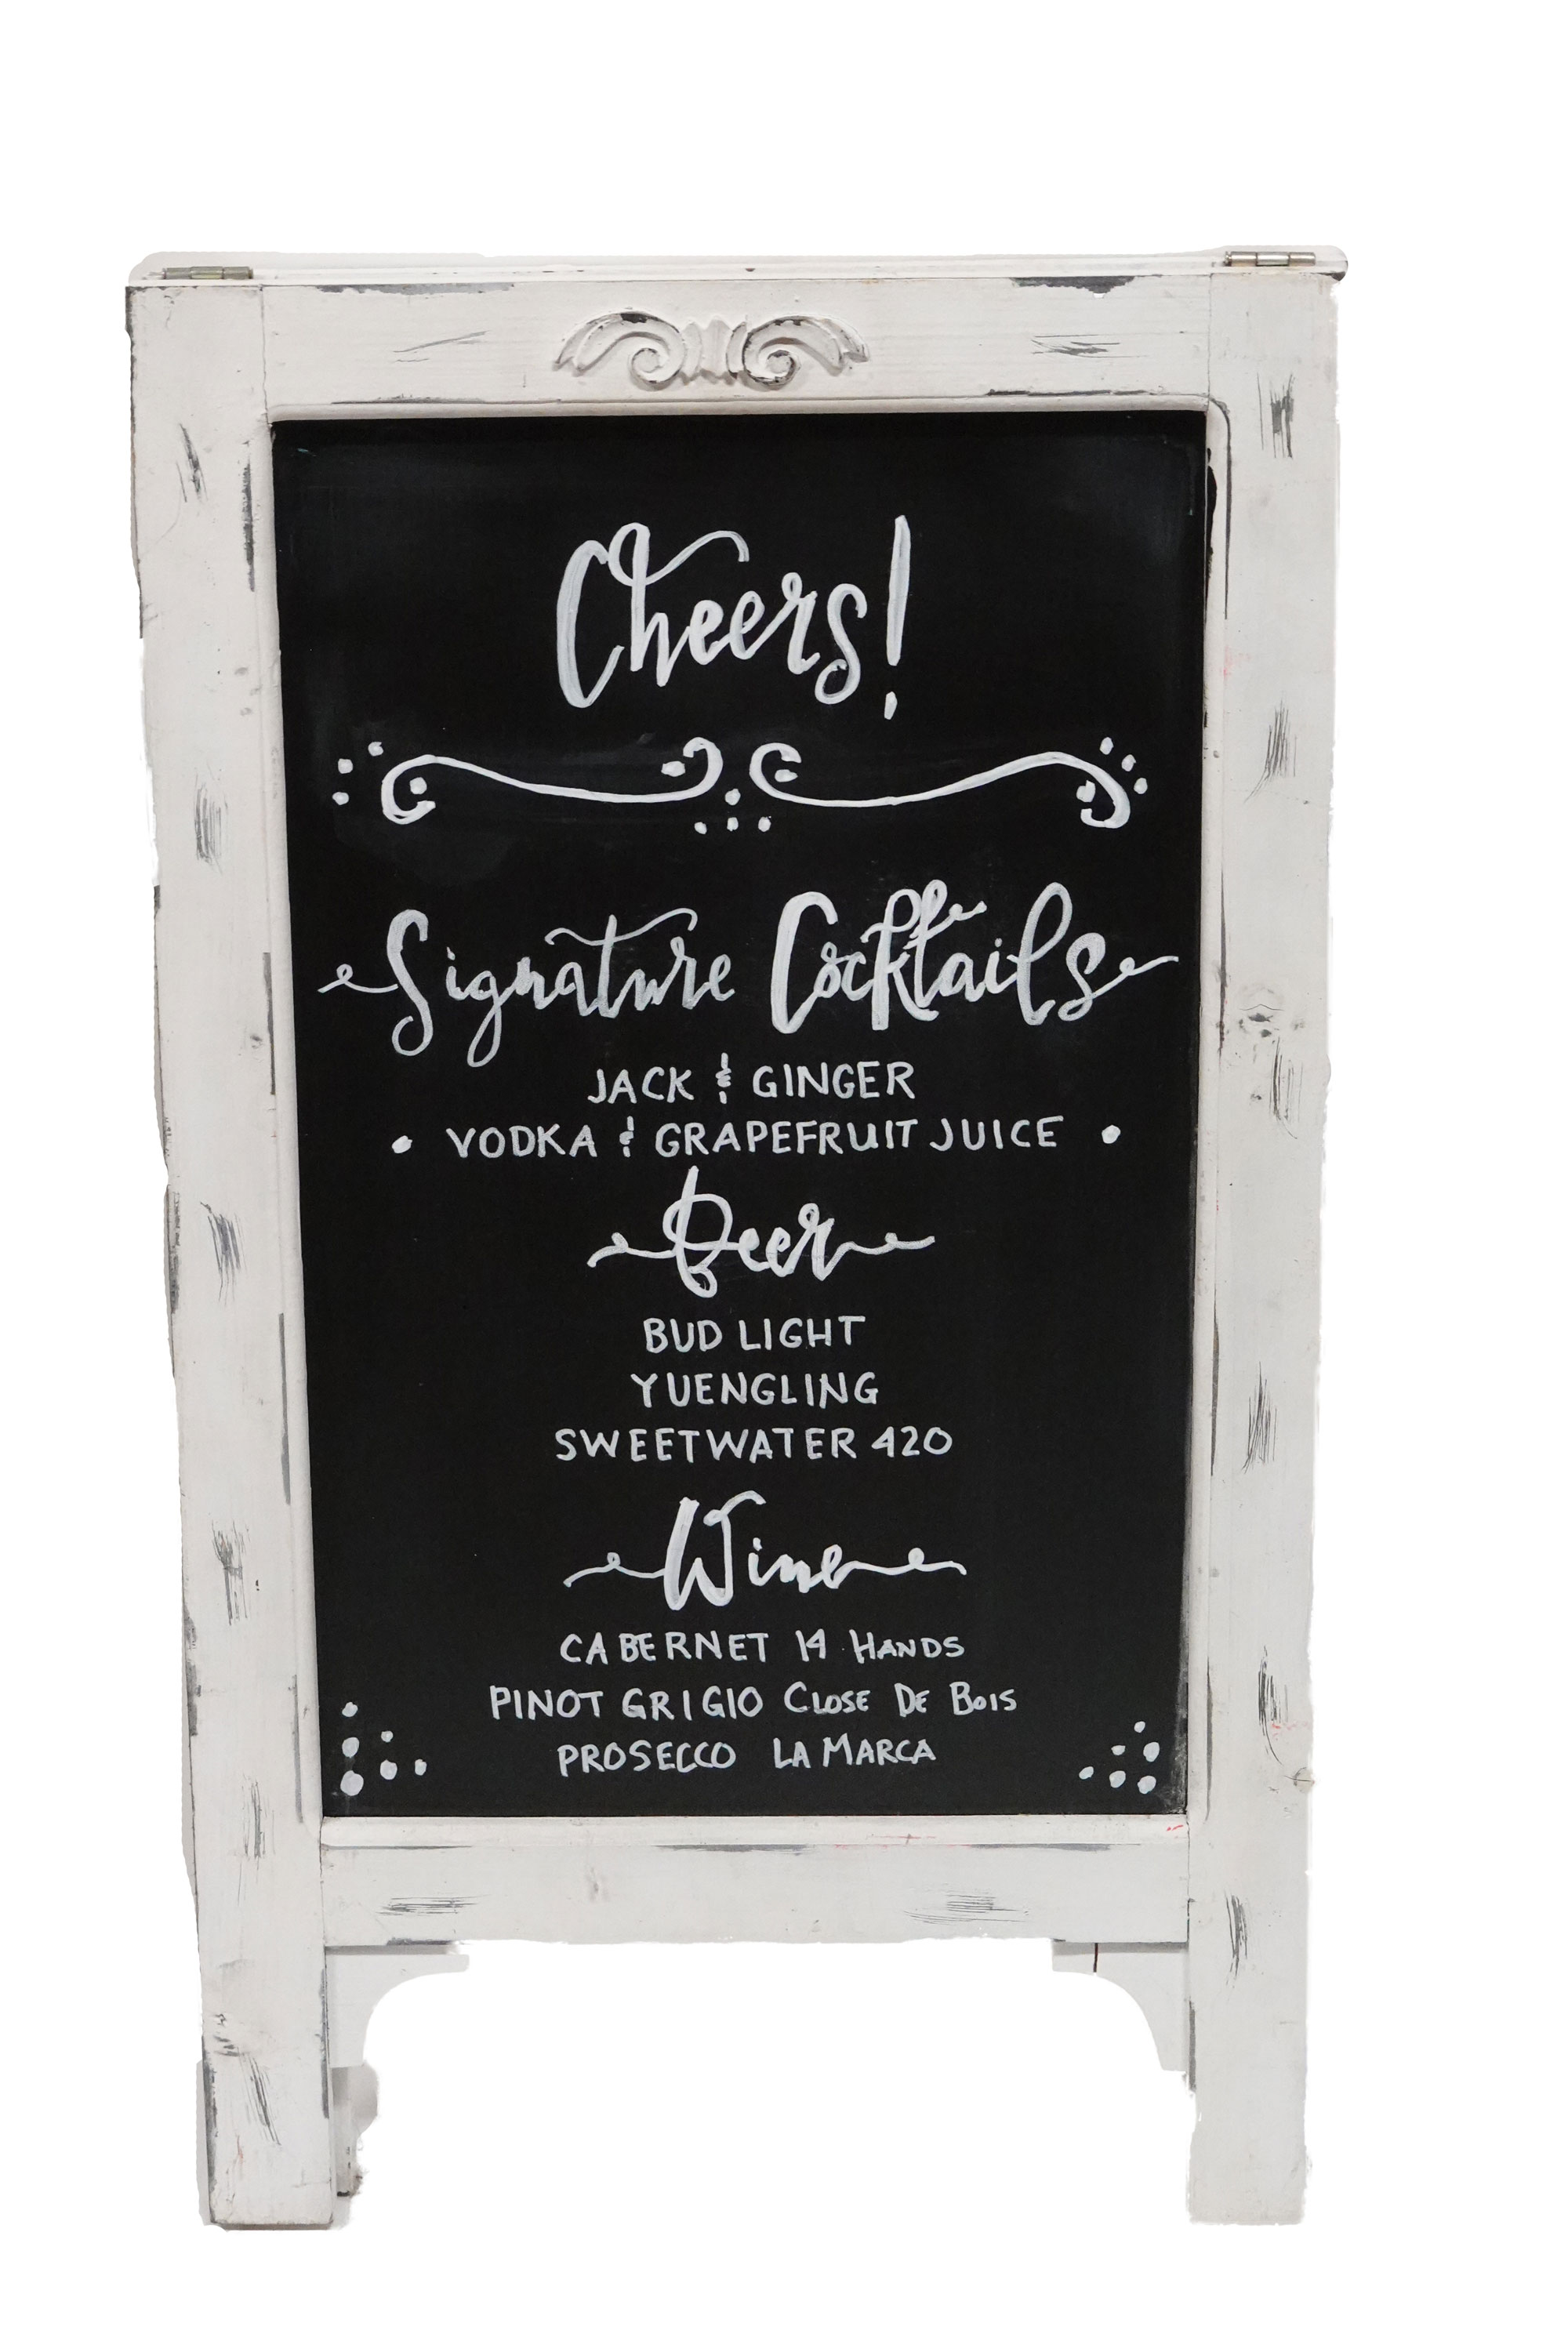 Cheers!
Signature Cocktails
JACK & GINGER
• VODKA & GRAPEFRUIT JUICE •
Beer
BUD LIGHT
YUENGLING
SWEETWATER 420
Wine
CABERNET 14 HANDS
PINOT GRIGIO CLOSE DE BOIS
PROSECCO LA MARCA